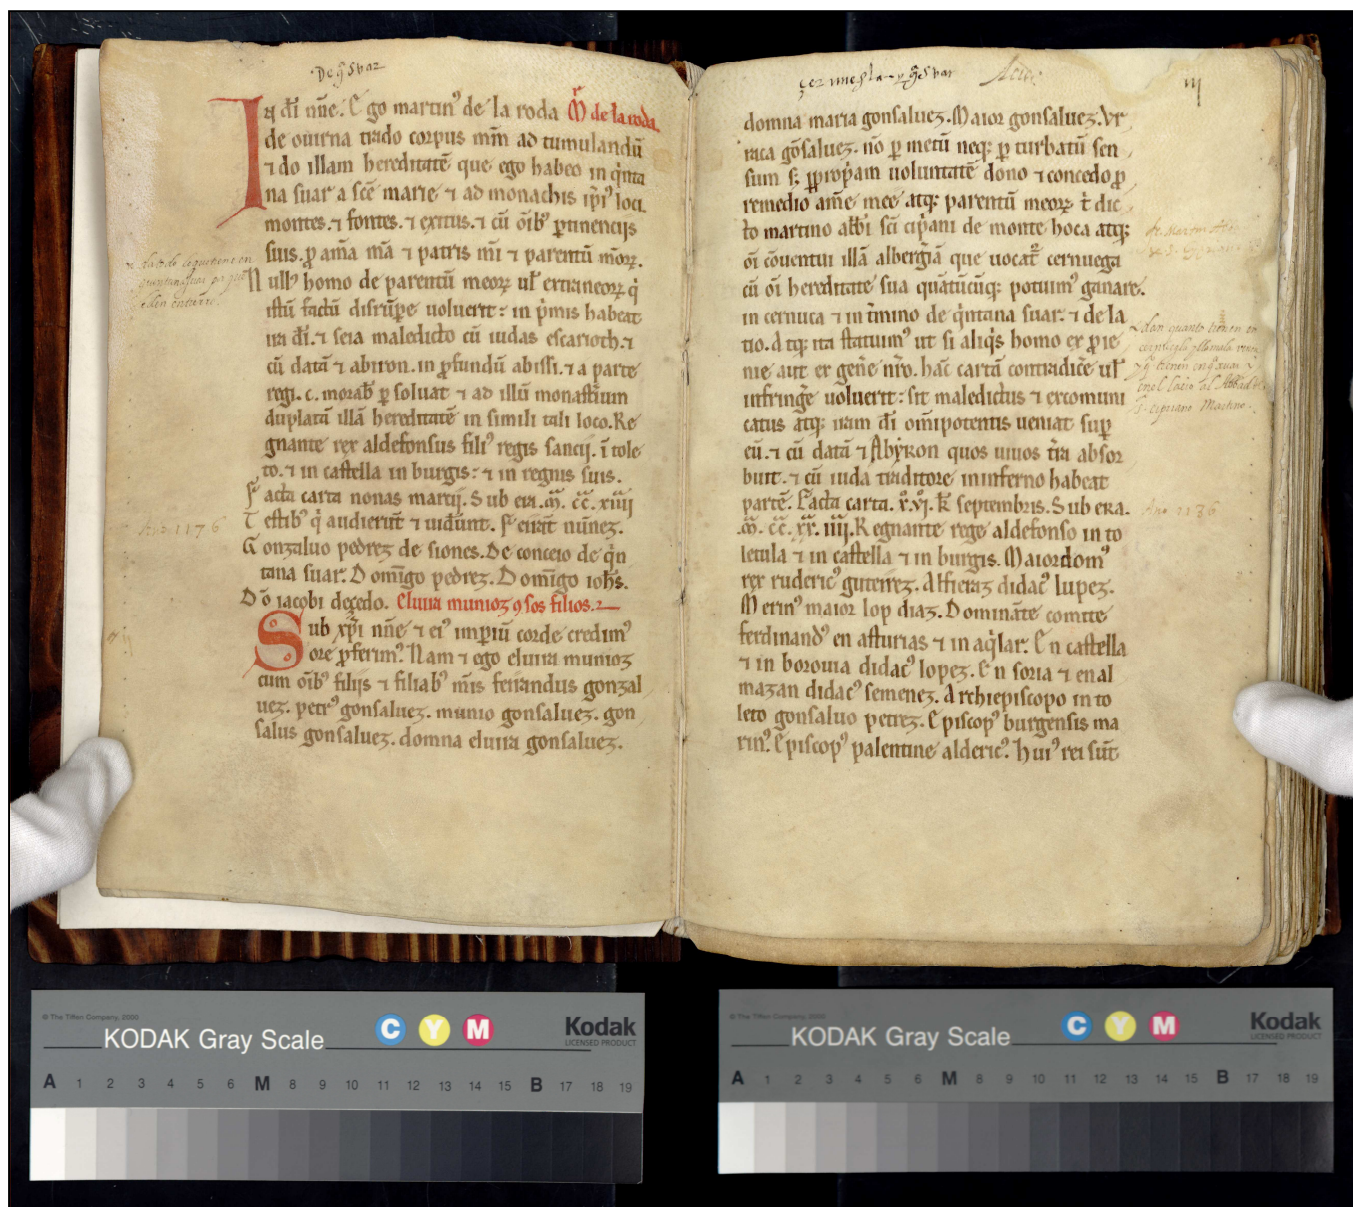 De q̃ svar
In dĩ nñe. Ego martinꝰ de la roda M̃ de la roda.
de ouirna trado corpus mm̃ ad tumulandũ
⁊ do illam hereditatẽ que ego habeo in q̃nta
na suar a scẽ marie ⁊ ad monachis ip̃iꝰ loci.
montes. ⁊ fontes. ⁊ exitus. ⁊ cũ õibꝰ ꝑtinencijs
suis. ꝓ am̃a m̃a ⁊ patris mĩ ⁊ parentũ moꝝ.
Nullꝰ homo de parentũ meoꝝ ul̃ extraneoꝝ q̃
istũ factũ disrũpe uoluerit: in p̃mis habeat
ira dĩ. ⁊ seia maledicto cũ iudas escarioth. ⁊
cũ datã ⁊ abiron. in ꝓfundũ abissi. ⁊ a parte
regi. c. morab̃ ꝑsoluat ⁊ ad illũ monastĩum
duplatã illã hereditatẽ in simili tali loco. Re
gnante rex aldefonsus filiꝰ regis sancij. ĩ tole
to. ⁊ in castella in burgis: ⁊ in regnis suis.
Facta carta nonas martij. Sub era. m̃. c̃c̃. xiiij
Testibꝰ q̃ audierũt ⁊ uidẽunt. Ferrãt nũnez.
Gonzaluo pedrez de siones. De conceio de q̃n
tana suar. Domĩgo pedrez. Domĩgo ioh̃s.
Dõ iacobi degedo. Eluira munioz ⁊ sos filios.
Sub xp̃i nñe ⁊ eiꝰ imꝑiũ corde credimꝰ
ore ꝓferimꝰ. Nam ⁊ ego eluira munioz
cum õibꝰ filijs ⁊ filiabꝰ m̃is ferrandus gonzal
uez. petrꝰ gonsaluez. munio gonsaluez. gon
salus gonsaluez. domna eluira gonsaluez.
Año 1176
iij
domna maria gonsaluez. Maior gonsaluez. Vr
raca gõsaluez. nõ ꝑ metũ neqꝫ ꝑ turbatũ sen
sum sꝫ ꝓprop̃am uoluntatẽ dono ⁊ concedo ꝓ
remedio am̃e mee atqꝫ parentũ meoꝝ t̃ dic
to martino ab̃bi sc̃i cip̃ani de monte hoca atqꝫ
õi cõuentui illã albergĩã que uocat̃ cernuega
cũ õi hereditate sua quãtũcũqꝫ potuimꝰ ganare.
in cernuca ⁊ in t̃mino de q̃ntana suar. ⁊ de la
tio. d tqꝫ ita statuimꝰ ut si aliq̃s homo ex ꝓie
nie aut ex geñe nr̃o. hac̃ cartã contradic̃e ul̃
infring̃e uoluerit: sit maledictus ⁊ excomuni
catus atqꝫ iram dĩ om̃ipotentis ueniat suꝑ
eũ. ⁊ cũ datã ⁊ Abyron quos uiuos tr̃a absor
buit. ⁊ cũ iuda traditore in inferno habeat
partẽ. Facta carta. x̃.ṽj. k̃ septembris. Sub era.
m̃. c̃c̃. x̃x̃. iiij. Regnante rege aldefonso in to
letula ⁊ in castella ⁊ in burgis. Maiordomꝰ
rex rudericꝰ guterrez. Alfieraz didacꝰ lupez.
Merinꝰ maior lop diaz. Dominãte comite
ferdinandꝰ en asturias ⁊ in aq̃lar. En castella
⁊ in borouia didacꝰ lopez. En soria ⁊ en al
mazan didacꝰ semenez. Archiepiscopo in to
leto gonsaluo petrez. Episcopꝰ burgensis ma
rinꝰ. Episcopꝰ palentine aldericꝰ. Huiꝰ rei sũt
© The Tiffen Company, 2000
KODAK Gray Scale
C Y M
Kodak
LICENSED PRODUCT
A 1 2 3 4 5 6 M 8 9 10 11 12 13 14 15 B 17 18 19
© The Tiffen Company, 2000
KODAK Gray Scale
C Y M
Kodak
LICENSED PRODUCT
A 1 2 3 4 5 6 M 8 9 10 11 12 13 14 15 B 17 18 19